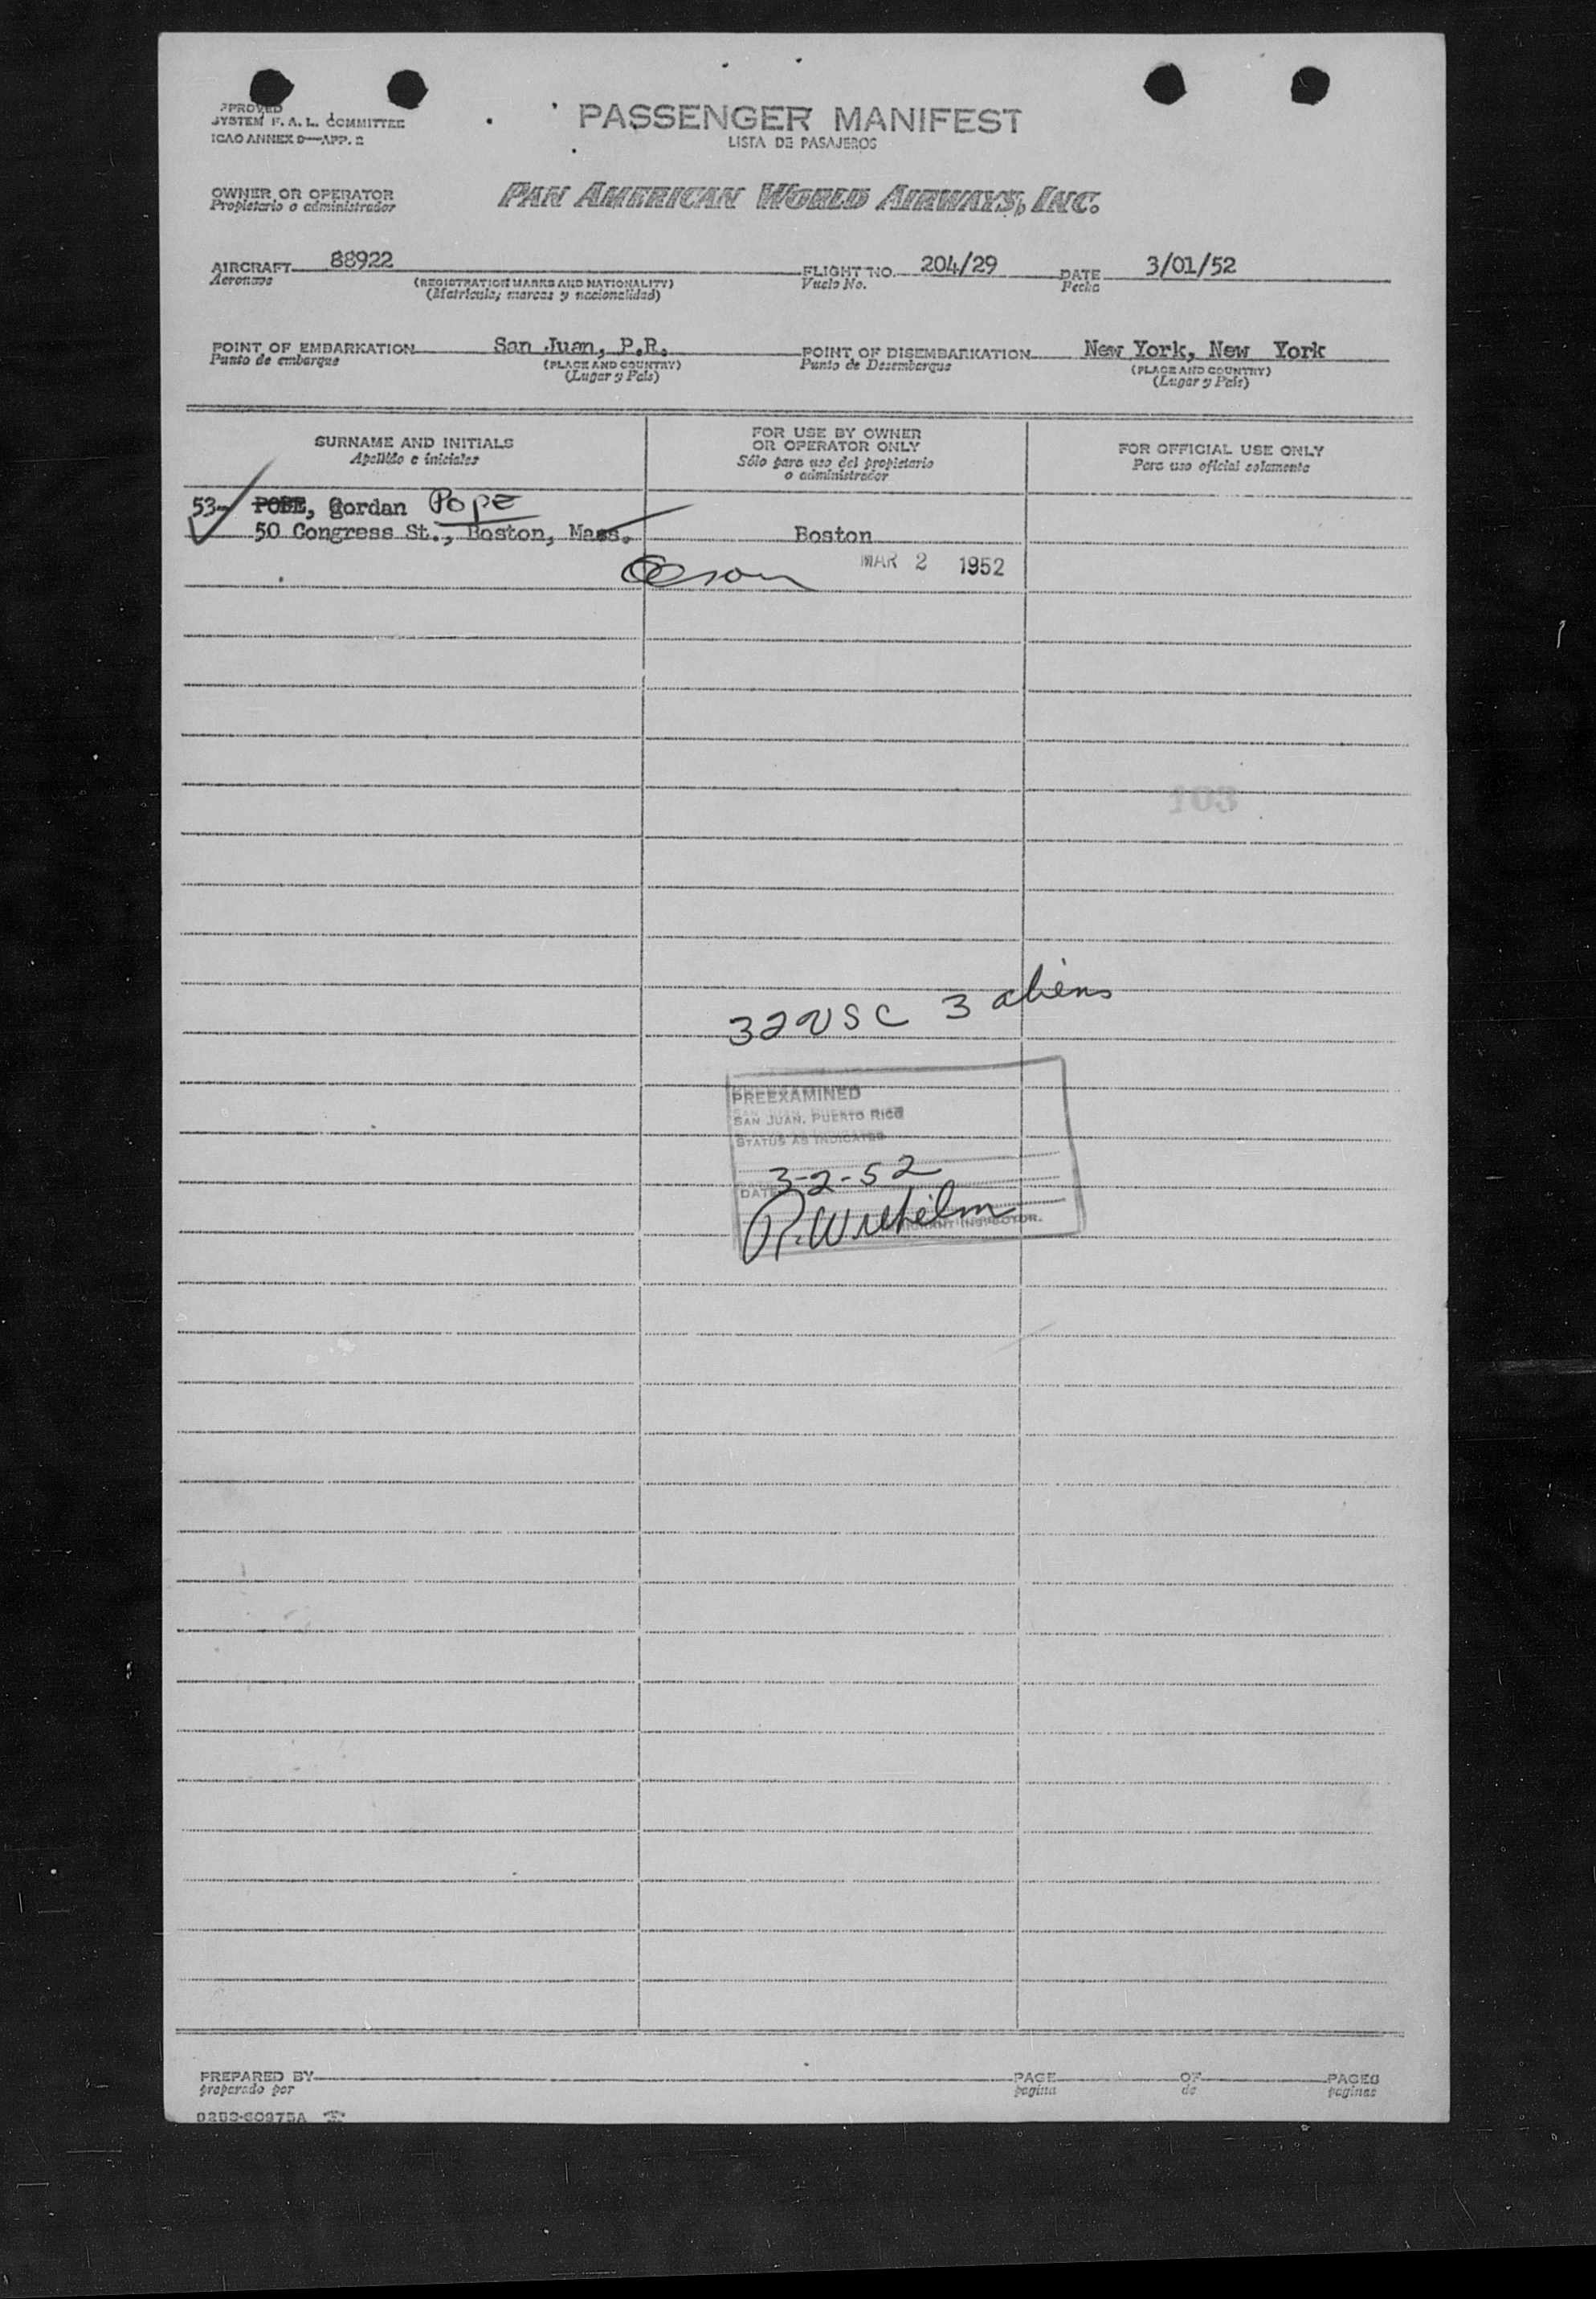 APPROVED
SYSTEM F. A. L. COMMITTEE
ICAO ANNEX 9—APP. 2
PASSENGER MANIFEST
LISTA DE PASAJEROS
OWNER OR OPERATOR
Propietario o administrador
PAN AMERICAN WORLD AIRWAYS, INC.
AIRCRAFT 88922 FLIGHT NO. 204/29 DATE 3/01/52
Aeronave (REGISTRATION MARKS AND NATIONALITY) Vuelo No. Fecha
(Matricula; marcas y nacionalidad)
POINT OF EMBARKATION San Juan, P.R. POINT OF DISEMBARKATION New York, New York
Punto de embarque (PLACE AND COUNTRY) Punto de Desembarque (PLACE AND COUNTRY)
(Lugar y País) (Lugar y País)
SURNAME AND INITIALS
Apellido e iniciales
FOR USE BY OWNER
OR OPERATOR ONLY
Sólo para uso del propietario
o administrador
FOR OFFICIAL USE ONLY
Para uso oficial solamente
53- , Gordan Pope
50 Congress St., Boston, Mass. Boston
MAR 2 1952
103
32 USC 3 aliens
PREEXAMINED
SAN JUAN, PUERTO RICO
STATUS AS INDICATED
DATE 3-2-52
R. Wilhelm
INSPECTOR.
PREPARED BY PAGE OF PAGES
preparado por pagina de paginas